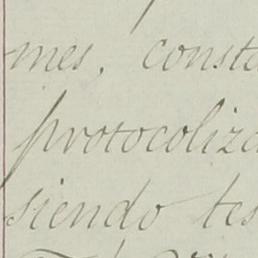 mes, const
protocoliza
siendo tes